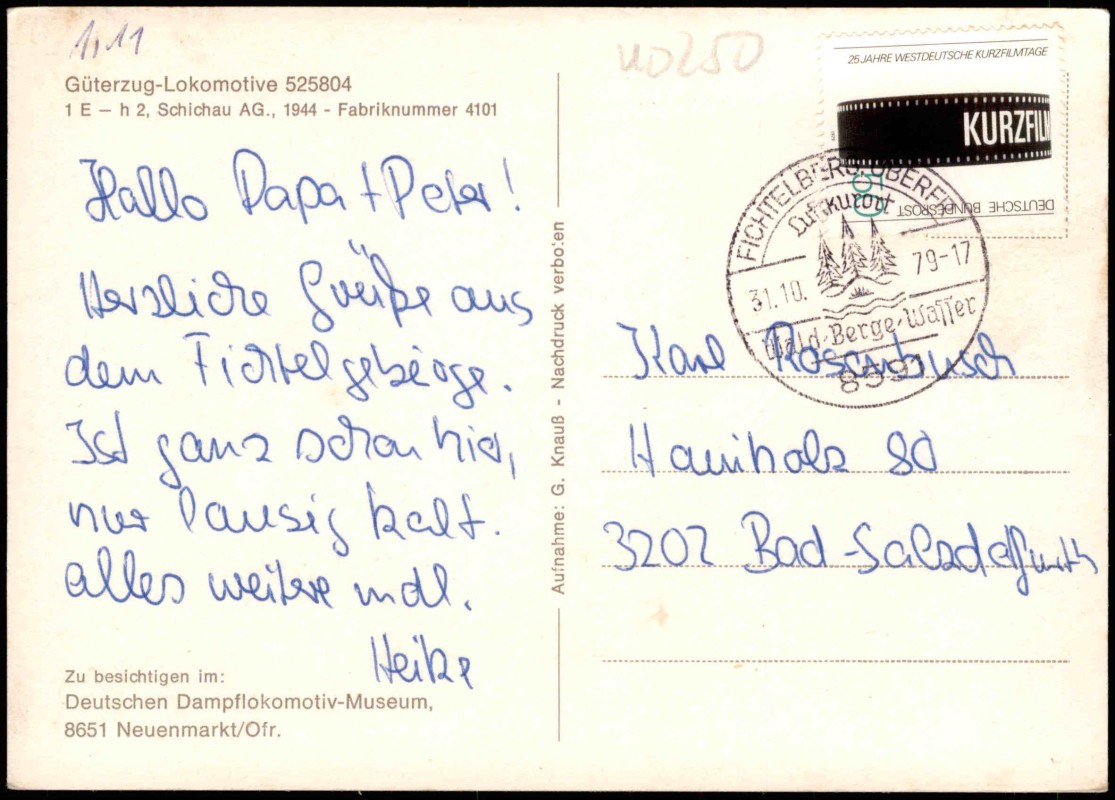 1,11
Güterzug-Lokomotive 525804
1 E – h 2, Schichau AG., 1944 - Fabriknummer 4101
Hallo Papa + Peter!
Herzliche Grüße aus
dem Fichtelgebirge.
Ist ganz schön hier,
nur lausig kalt.
alles weitere mdl.
Heike
Zu besichtigen im:
Deutschen Dampflokomotiv-Museum,
8651 Neuenmarkt/Ofr.
Aufnahme: G. Knauß - Nachdruck verboten
25 JAHRE WESTDEUTSCHE KURZFILMTAGE
KURZFILM
50
DEUTSCHE BUNDESPOST
FICHTELBERG, OBERFR
Luftkurort
31.10. 79-17
Wald-Berge-Wasser
8591
Karl Rosenbusch
80
3202 Bad-Salzdetfurth